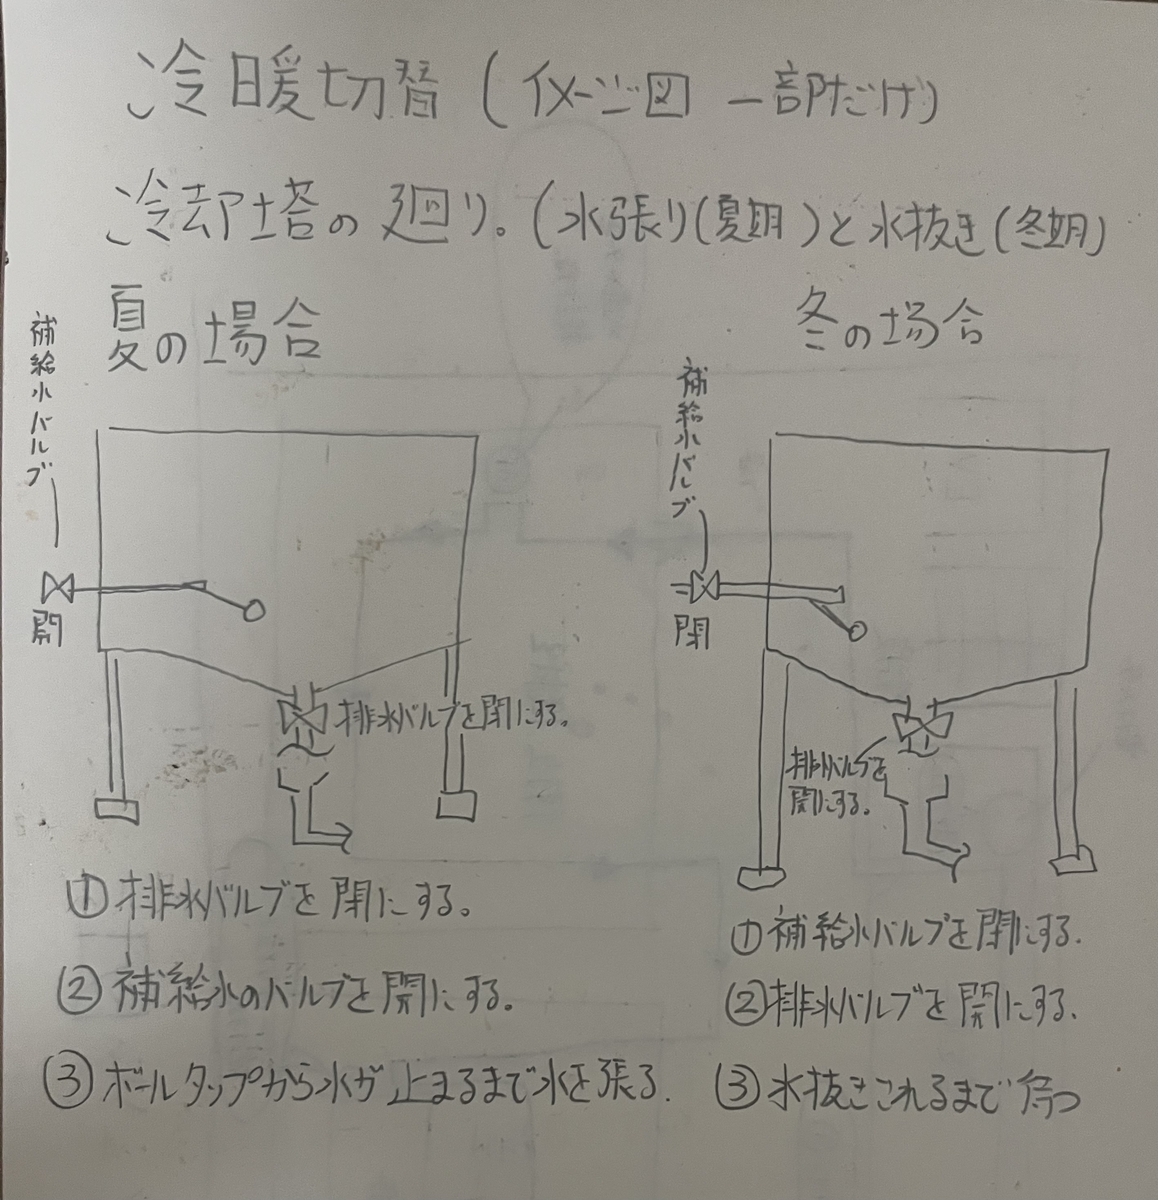 冷暖切替(イメージ図 一部だけ)
冷却塔の廻り。(水張り(夏期)と水抜き(冬期)
夏の場合
補給水バルブ
開
排水バルブを閉にする。
①排水バルブを閉にする。
②補給水のバルブを開にする。
③ボールタップから水が止まるまで水を張る.
冬の場合
補給水バルブ
閉
排水バルブを
開にする。
①補給水バルブを閉にする.
②排水バルブを開にする.
③水抜きされるまで待つ